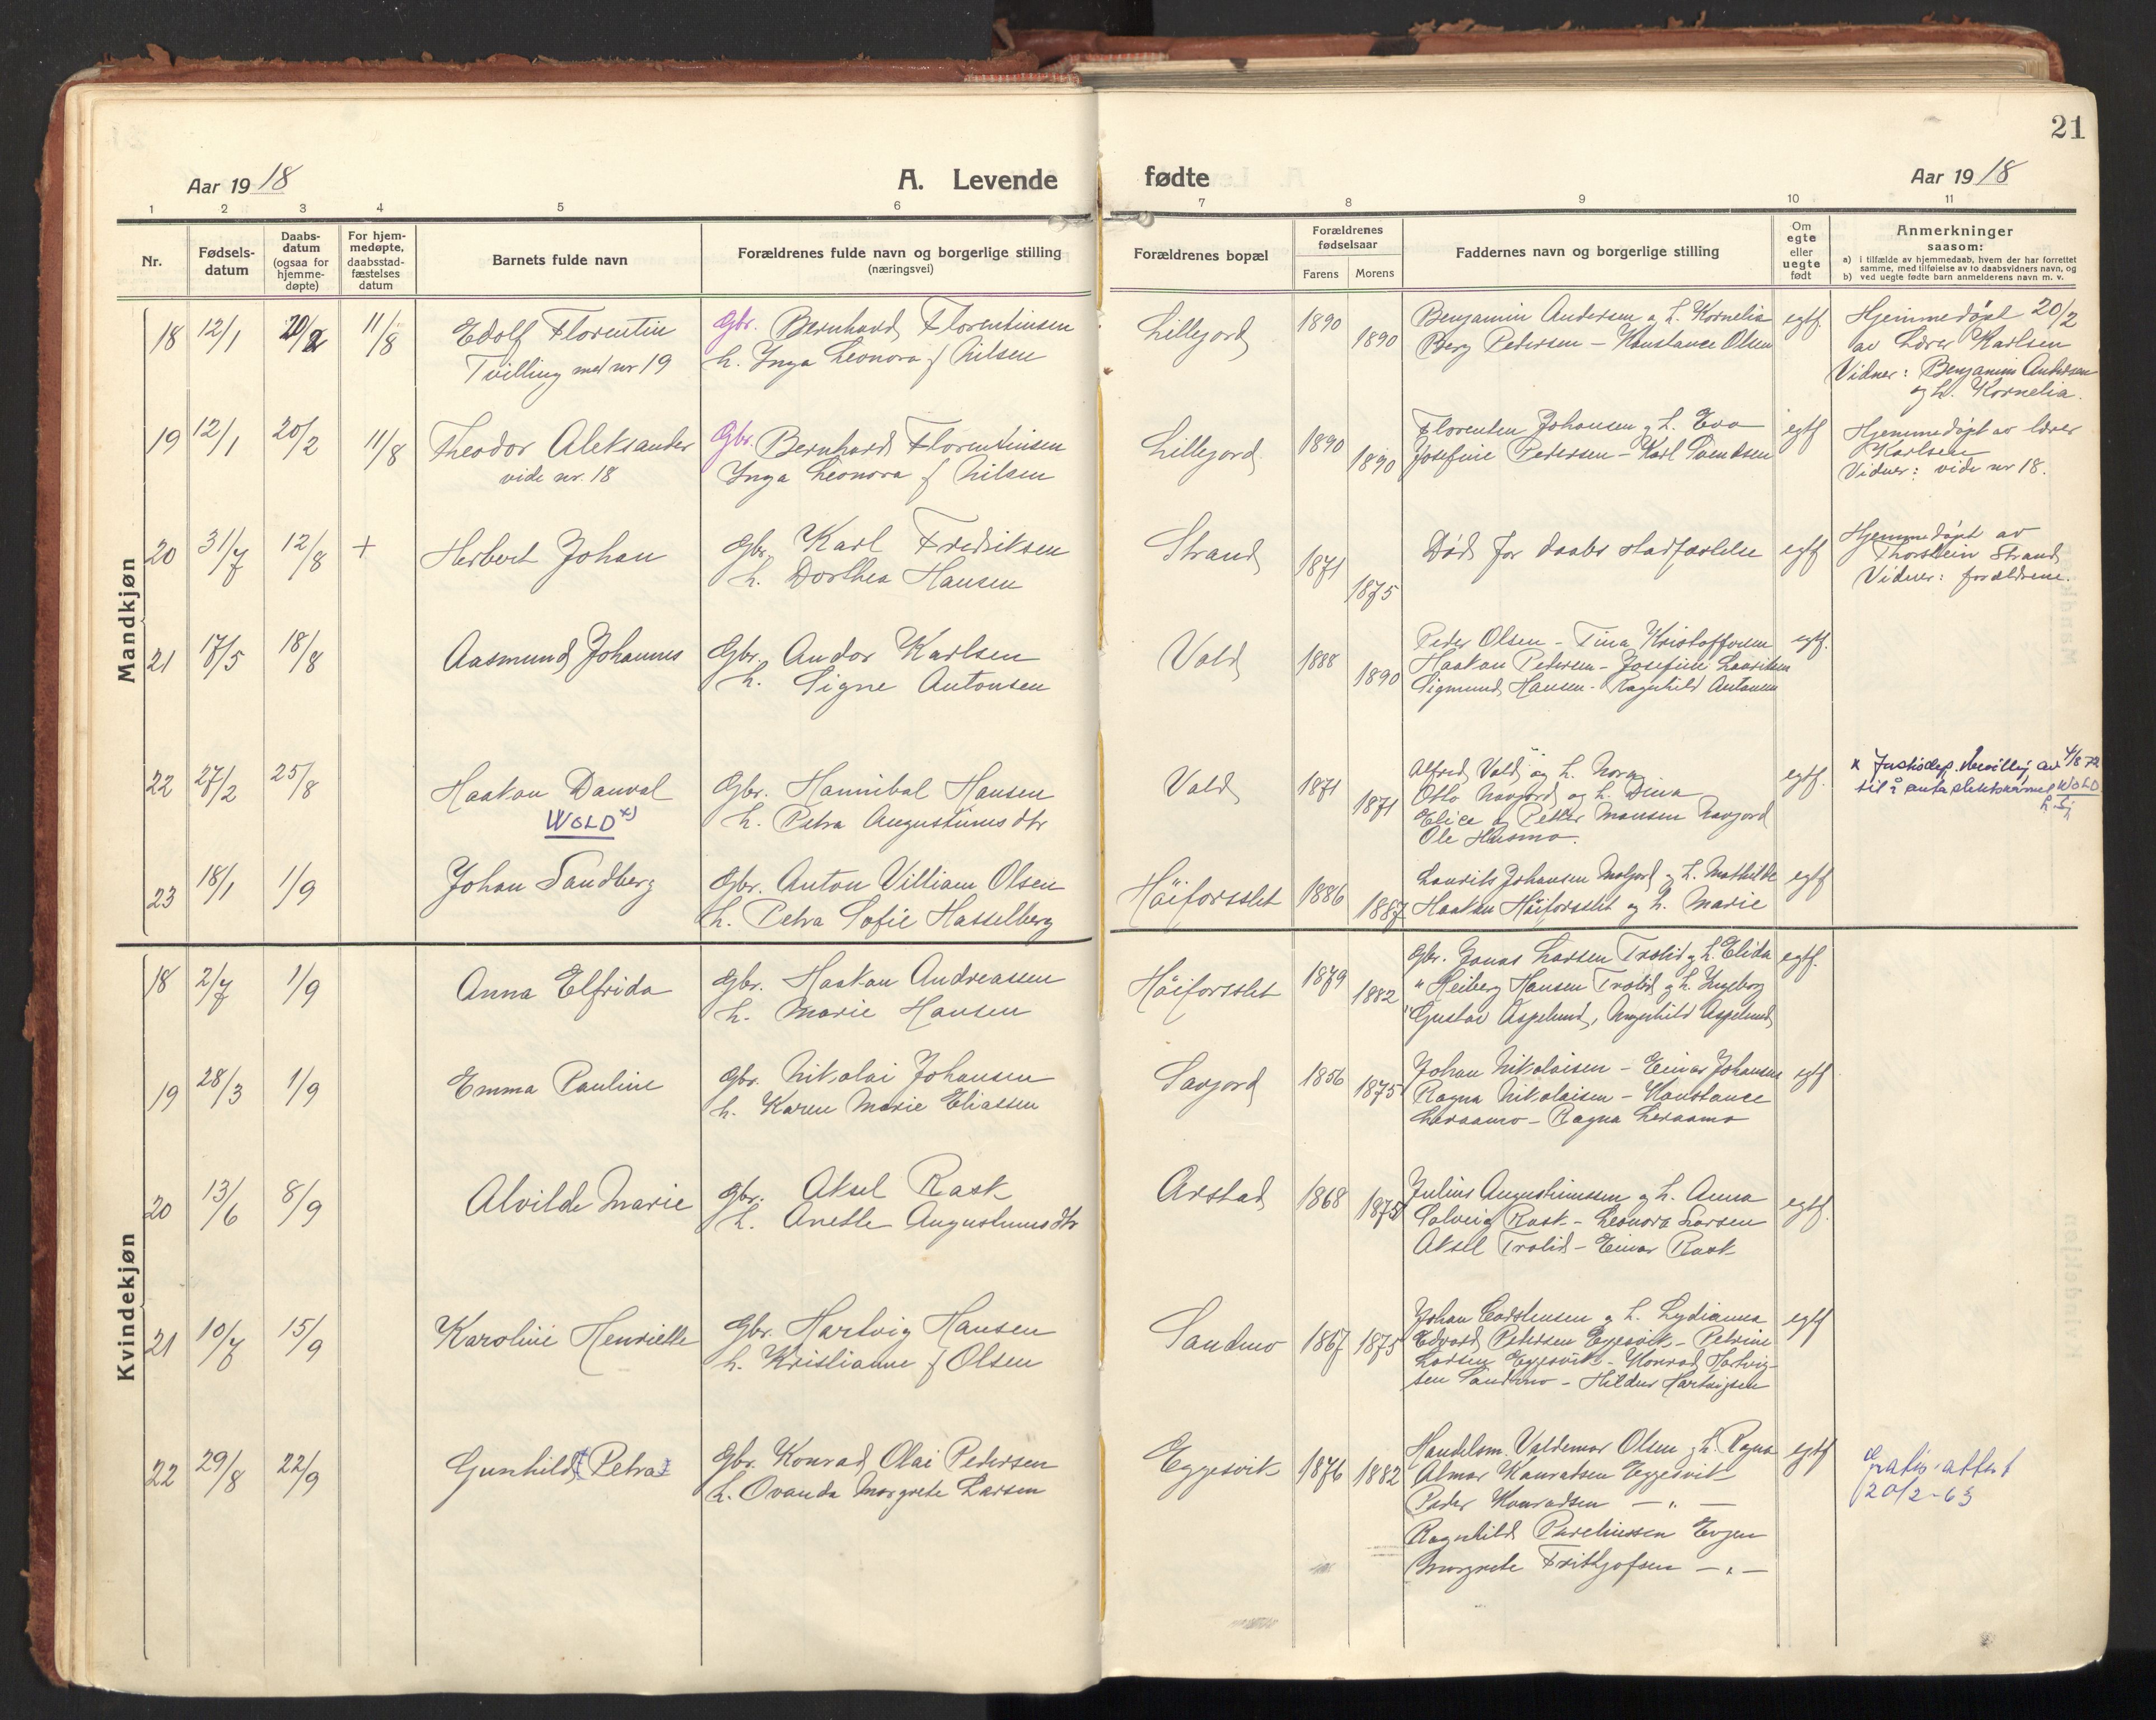 21
Aar 1918
A. Levende fødte
Aar 1918
1 2 3 4 5 6 7 8 9 10 11
Nr.
Fødsels-
datum
Daabs-
datum
(ogsaa for
hjemme-
døpte)
For hjem-
medøpte,
daabsstad-
fæstelses
datum
Barnets fulde navn
Forældrenes fulde navn og borgerlige stilling
(næringsvei)
Forældrenes bopæl
Forældrenes
fødselsaar
Farens Morens
Faddernes navn og borgerlige stilling
Om
egte
eller
uegte
født
Anmerkninger
saasom:
a) i tilfælde av hjemmedaab, hvem der har forrettet
samme, med tilføielse av to daabsvidners navn, og
b) ved uegte fødte barn anmelderens navn m. v.
Mandkjøn
18 12/1 20/2 11/8
Edolf Florentin
Tvilling med nr 19
Gbr. Bernhard Florentinsen
h. Inga Leonora f Nilsen
Lillejord 1890 1890
Benjamin Andersen og h. Kornelia
Berg Pedersen – Konstance Olsen
egtf.
Hjemmedøpt 20/2
av Lærer Karlsen
Vidner: Benjamin Andersen
og h. Kornelia.
19 12/1 20/2 11/8
Theodor Aleksander
vide nr. 18
Gbr. Bernhard Florentinsen
Inga Leonora f Nilsen
Lillejord 1890 1890
Florenten Johansen og h. Eva
Josefine Pedersen – Karl Svendsen
egtf
Hjemmedøpt av lærer
Karlsen
Vidner: vide nr 18.
20 31/7 12/8 +
Herbert Johan
Gbr. Karl Fredriksen
h. Dorthea Hansen
Strand 1871 1875
Død før daabs stadfæstelse
egtf
Hjemmedøpt av
Thorstein Strand
Vidner: forældrene.
21 17/5 18/8
Aasmund Johannes
Gbr. Andor Karlsen
h. Signe Antonsen
Vold 1888 1890
Peder Olsen – Tina Kristoffersen
Haakon Pedersen – Josefine Lauritsen
Sigmund Hansen – Ragnhild Antonsen
egtf.
22 27/2 25/8
Haakon Danval
WOLD x)
Gbr. Hannibal Hansen
h. Petra Augustinusdtr
Vold 1871 1871
Alfred Vold og h. Nora
Otto Navjord og h. Dina
Elise og Petter Monsen Navjord
Ole Husmo.
egtf.
x Justisdep. bevilling av 4/8 72
til å anta slektsnavnet WOLD
23 18/1 1/9
Johan Sandberg
Gbr. Anton Villiam Olsen
h. Petra Sofie Hasselberg
Höiforsslet 1886 1887
Laurits Johansen Moljord og h. Mathilde
Haakon Höiforsslet og h. Marie
egtf
Kvindekjøn
18 2/7 1/9
Anna Elfrida
Gbr. Haakon Andreassen
h. Marie Hansen
Höiforsslet 1879 1882
Gbr. Jonas Larsen Trolid og h. Elida
" Heiberg Hansen Trolid og h. Ingeborg
Gustav Aspelund, Ragnhild Aspelund
egtf.
19 28/3 1/9
Emma Pauline
Gbr. Nikolai Johansen
h. Karen Marie Eliassen
Savjord 1856 1875
Johan Nikolaisen – Einar Johansen
Ragna Nikolaisen – Konstance
– Ragna Leraamo
egtf
20 13/6 8/9
Alvilde Marie
Gbr. Aksel Rask
h. Anette Augustinusdtr
Arstad 1868 1875
Julius Augustinussen og h. Anna
Solveig Rask – Leonora Larsen
Aksel Trolid – Einar Rask
egtf.
21 10/7 15/9
Karoline Henriette
Gbr. Hartvig Hansen
h. Kristianne f Olsen
Sandmo 1867 1875
Johan Carstensen og h. Lydianna
Edvard Petersen Eggesvik – Petrine
Larsen Eggesvik – Konrad Hartvig-
sen Sandmo – Hildur Hartvigsen
egtf
22 29/8 22/9
Gunhild Petra
Gbr. Konrad Olai Pedersen
h. Ovanda Margrete Larsen
Eggesvik 1876 1882
Handelsm. Valdemar Olsen og h. Ragna
Almar Konradsen Eggesvik
Peder Konradsen — " —
Ragnhild Parelinssen Evjen
Margrete Frithjofsen — " —
egtf
Gratis attest
20/2-63